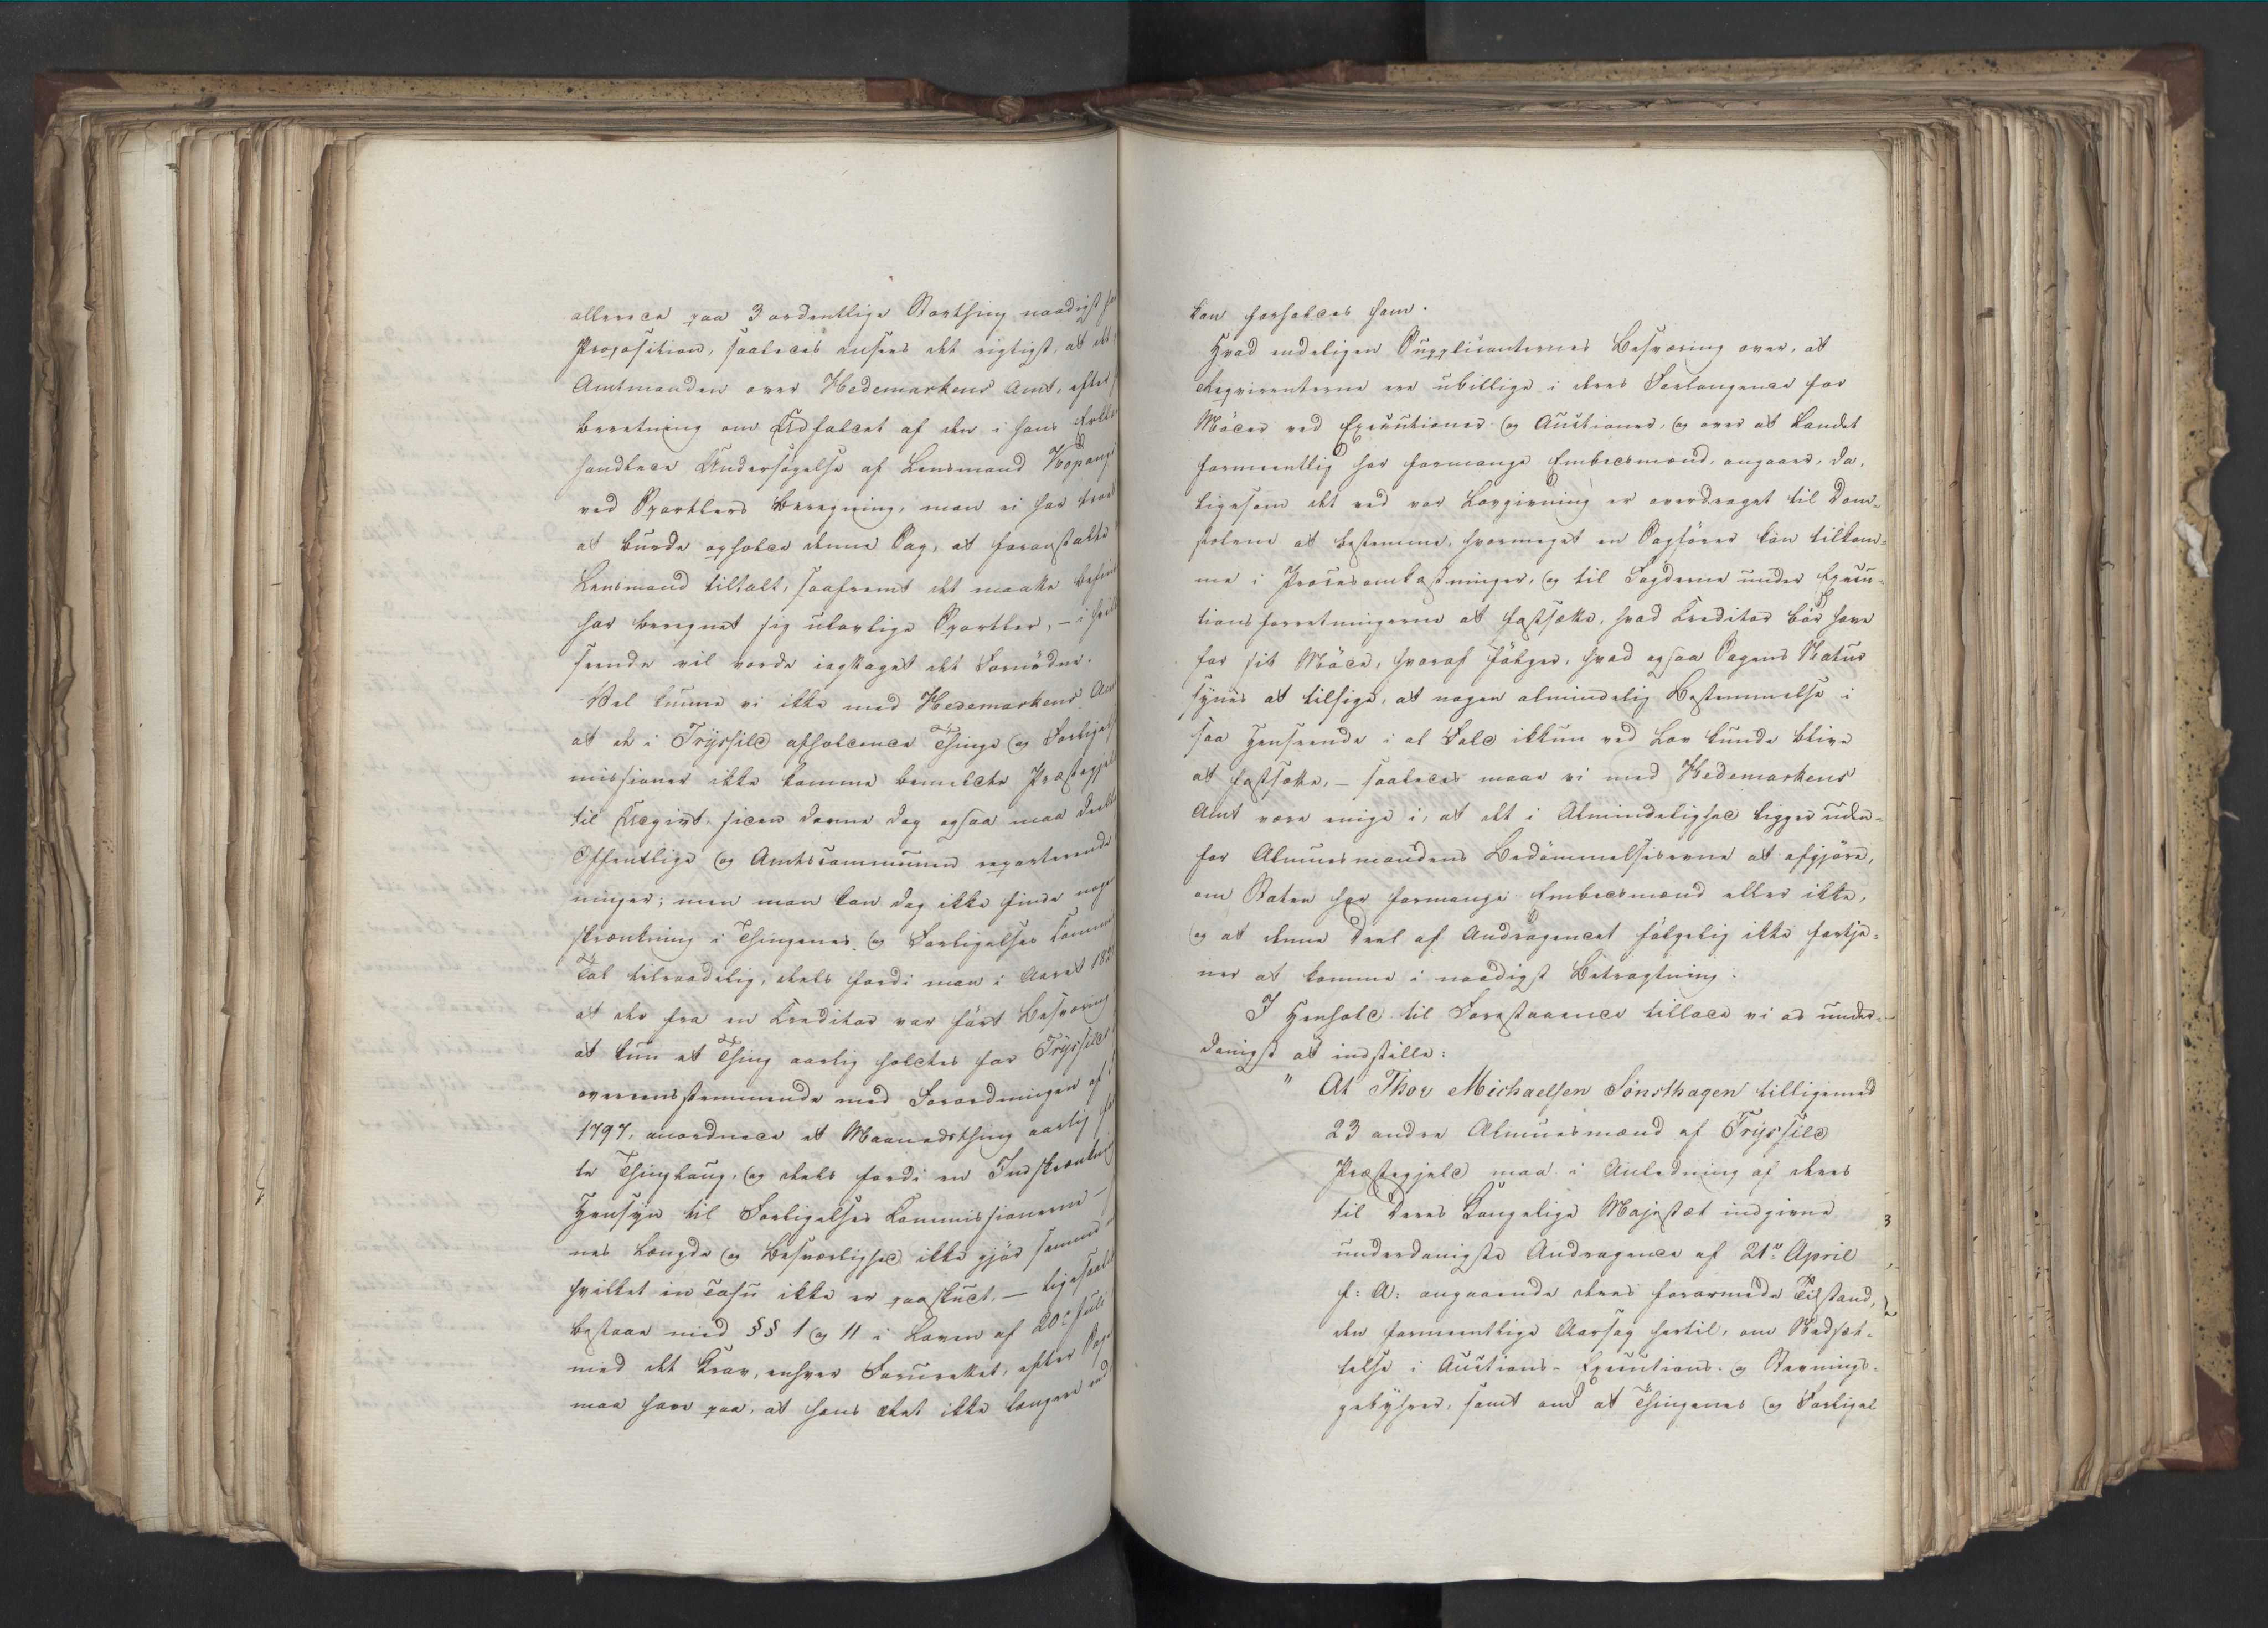 allerede paa 3 ordentlige Storthing naadigst
Proposition, saaledes ansees det rigtigst, at
Amtmanden over Hedemarkens Amt, efter
Beretning om Udfaldet af den i hans
handlede Undersøgelse af Lensmand
ved Sportlers Beregning, man ei har
at burde opholde denne Sag, at foranstalte
Lensmand tiltalt, saafremt det maatte
har beregnet sig ulovlige Sportler, – i
seende vil vorde iagttaget det Fornødne.
Vel kunne vi ikke med Hedemarkens
at de i Trÿssild afholdende Thinge og
missioner ikke komme bemeldte Præstegjeld
til Udgivt, siden denne dog ogsaa maa
Offentlige og Amtscommunen reparterende
ninger; men man kan dog ikke finde
skrænkning i Thingenes og Forligelses
Tal tilraadelig, deels fordi man i Aaret
at der fra en Creditor var ført Besværing
at kun et Thing aarlig holdtes for Trÿssild
overeensstemmende med Forordningen af
1797, anordnede et Maanedsthing aarlig
te Thinglaug, og deels fordi en Indskrænkning
Hensyn til Forligelses Commissionerne –
nes Længde og Besværlighed ikke gjør
hvilket in Casu ikke er paaskudt, –
bestaae med §§ 1 og 11 i Loven af 20de Juli
med det Krav, enhver Forurettet, efter
maa have paa, at hans Ret ikke længere end
kan forholdes ham.
Hvad endeligen Supplicanternes Besværing over, at
Reqvirenterne ere ubillige i deres Forlangende for
Møder ved Executioner og Auctioner, og over at Landet
formeentlig har formange Embedsmænd, angaaer, da,
ligesom det ved vor Lovgivning er overdraget til Dom-
stolene at bestemme, hvormeget en Sagfører kan tilkom-
me i Procesomkostninger, og til Fogderne under Execu-
tionsforretningerne at fastsætte, hvad Creditor bør have
for sit Møde, hvoraf følger, hvad ogsaa Sagens Natur
synes at tilsige, at nogen almindelig Bestemmelse i
saa Henseende i al Fald ikkun ved Lov kunde blive
at fastsætte, – saaledes maae vi med Hedemarkens
Amt være enige i, at det i Almindelighed ligger uden-
for Almuesmandens Bedømmelsesevne at afgjøre,
om Staten har formange Embedsmænd eller ikke,
og at denne Deel af Andragendet følgelig ikke fortje-
ner at komme i naadigst Betragtning.
I Henhold til Forestaaende tillade vi os under-
danigst at indstille:
" At Thor Michaelsen Sønsthagen tilligemed
23 andre Almuesmænd af Trÿssild
Præstegjeld maa i Anledning af deres
til Deres Kongelige Majestæt indgivne
underdanigste Andragende af 21de April
f: A: angaaende deres forarmede Tilstand,
den formeentlige Aarsag hertil, om Nedsæt-
telse i Auctions- Executions- og Stevnings-
gebyhrer, samt om at Thingenes og Forligel